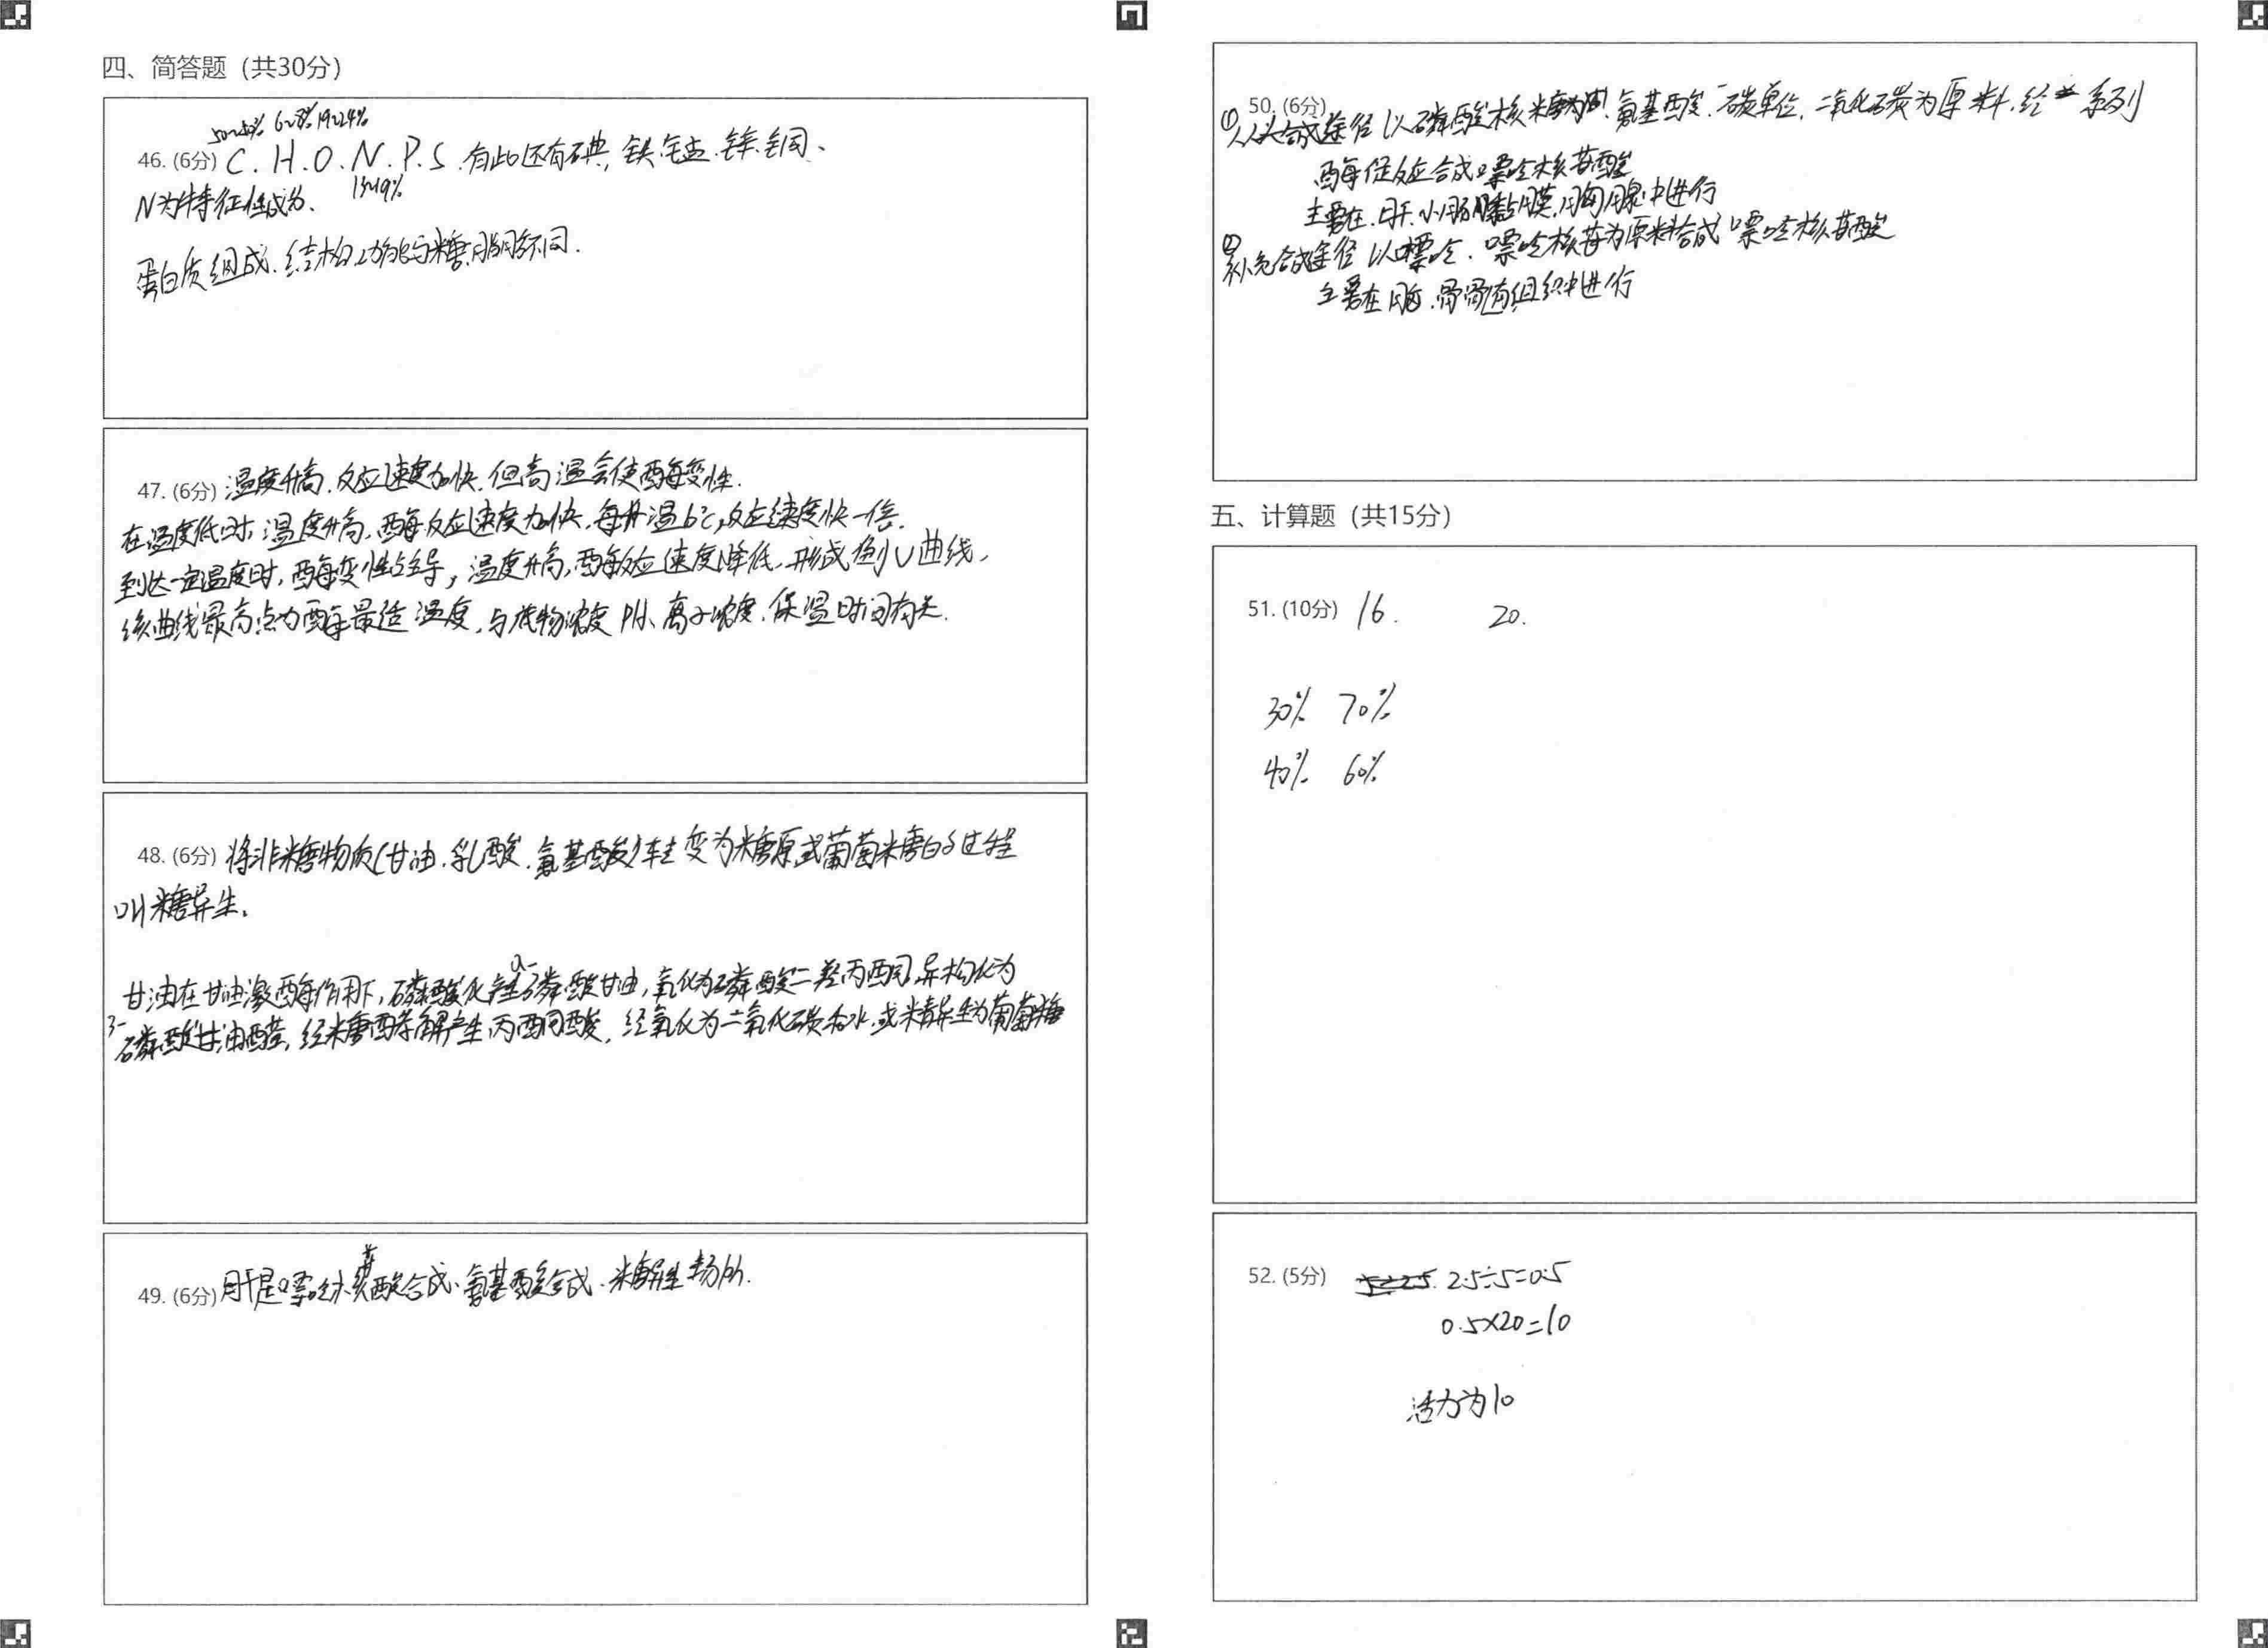 四、简答题（共30分）
50~55% 6~8% 19~24%
46. (6分) C. H. O. N. P. S. 有些还有碘, 铁. 锰. 锌. 铜、
13~19%
N为特征性成分、
蛋白质组成. 结构. 功能与糖. 脂肪不同.
47. (6分) 温度升高. 反应速度加快. 但高温会使酶变性.
在温度低时, 温度升高, 酶反应速度加快. 每升温6℃, 反应速度快一倍.
到达一定温度时, 酶变性占主导, 温度升高, 酶反应速度降低. 形成倒U曲线,
该曲线最高点为酶最适温度, 与底物浓度 PH、离子浓度. 保温时间有关.
48. (6分) 将非糖物质(甘油. 乳酸. 氨基酸)转变为糖原或葡萄糖的过程
叫糖异生。
甘油在甘油激酶作用下, 磷酸化产生α-磷酸甘油, 氧化为磷酸二羟丙酮, 异构化为
3-磷酸甘油醛, 经糖酵解产生丙酮酸, 经氧化为二氧化碳和水. 或糖异生为葡萄糖
49. (6分) 肝是嘌呤核苷酸合成、氨基酸合成. 糖异生场所.
50. (6分)
①从头合成途径 以磷酸核糖. 氨基酸. 一碳单位. 二氧化碳为原料. 经一系列
酶促反应合成嘌呤核苷酸
主要在. 肝. 小肠黏膜. 胸腺中进行
②补救合成途径 以嘌呤. 嘌呤核苷为原料合成嘌呤核苷酸
主要在脑. 骨髓组织中进行
五、计算题（共15分）
51. (10分) 16. 20.
30% 70%
40% 60%
52. (5分) 2.5÷5=0.5
0.5×20=10
活力为10